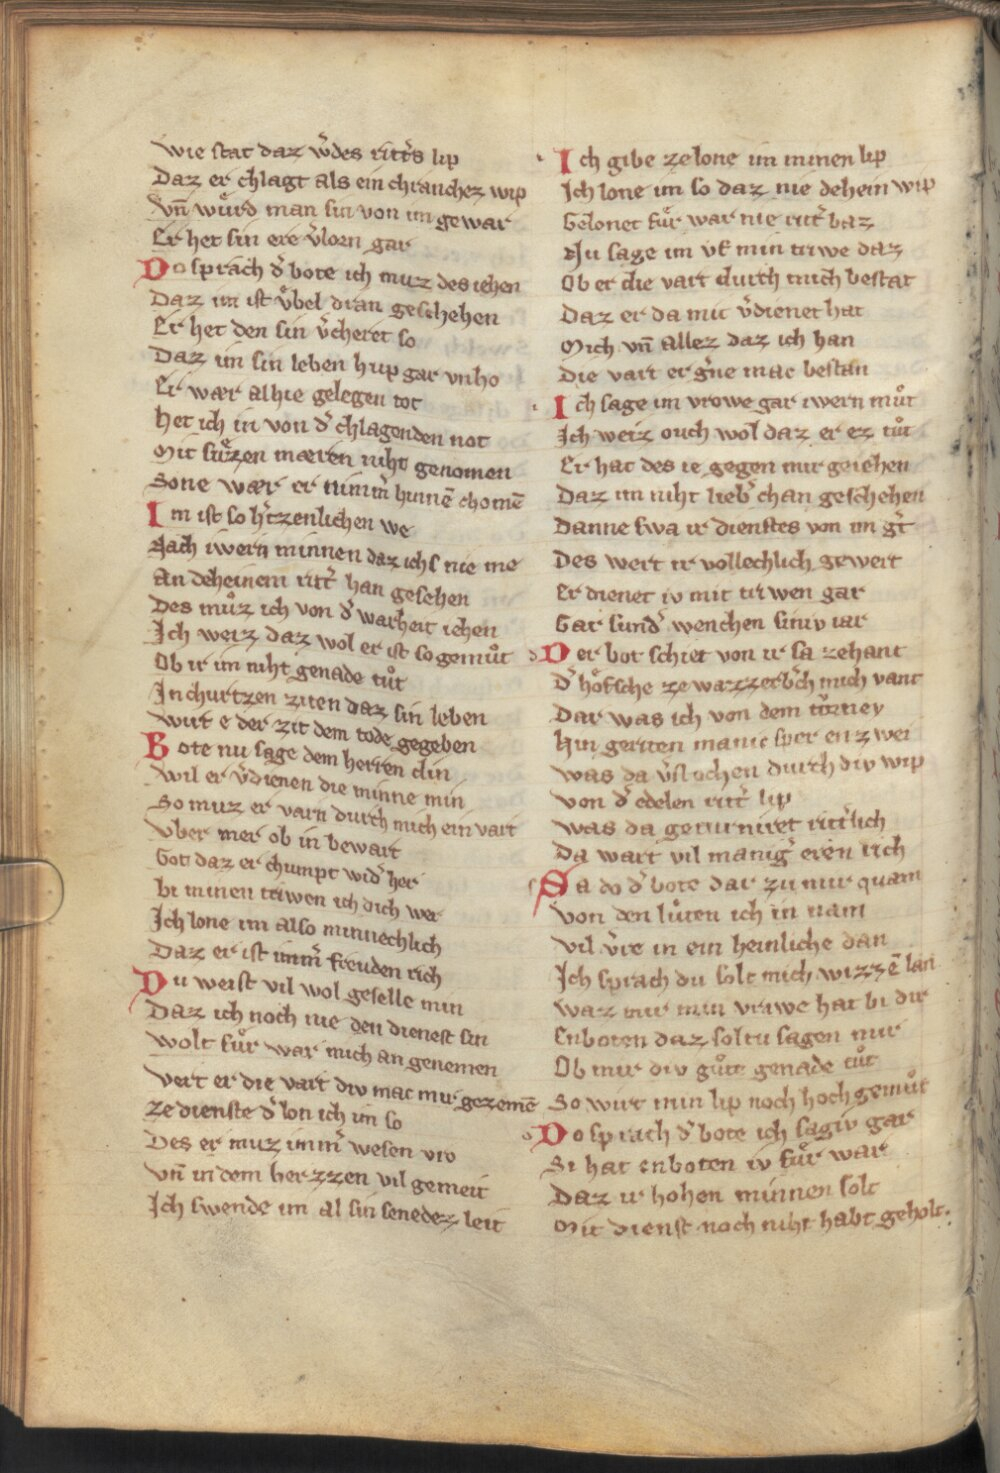 wie stat daz w̓des ritt̓s lip
Daz er chlagt als ein chranchez wip
Vn̄ wuͤrd man sin von im gewar
Er het sin ere v̓lorn gar
Do sprach d̓ bote ich muz des iehen
Daz im ist vͤbel dran geschehen
Er het den sin v̓cheret so
Daz im sin leben hup gar vnho
Er wær alhie gelegen tot
Het ich in von d̓ chlagenden not
Mit suͤzen mæren niht genomen
Sone wær er nimm̓ hinnē chomē
Im ist so h̓tzenlichen we
Nach iwern minnen daz ichs nie me
An deheinem ritt̓ han gesehen
Des muͦz ich von d̓ warheit iehen
Ich weiz daz wol er ist so gemuͦt
Ob ir im niht genade tuͦt
In churtzen ziten daz sin leben
wirt e der zit dem tode gegeben
Bote nu sage dem herren din
wil er v̓dienen die minne min
So muz er varn durch mich ein vart
Vber mer ob in bewart
Got daz er chumpt wid̓ her
bi minen triwen ich dich wer
Ich lone im also minnechlich
Daz er ist imm̓ freuden rich
Du weist vil wol geselle min
Daz ich noch nie den dienest sin
wolt fuͤr war mich an genemen
Vert er die vart div mac mir gezemē
ze dienste d̓ lon ich im so
Des er muz imm̓ wesen vro
Vn̄ in dem herzzen vil gemeit
Ich swende im al sin senedez leit
Ich gibe ze lone im minen lip
Ich lone im so daz nie dehein wip
Gelonet fuͤr war nie ritt̓ baz
Nu sage im vf min triwe daz
Ob er die vart durch mich bestat
Daz er da mit v̓dienet hat
Mich vn̄ allez daz ich han
Die vart er g̓ne mac bestan
Ich sage im vrowe gar iwern muͦt
Ich weiz ouch wol daz er ez tuͦt
Er hat des ie gegen mir geiehen
Daz im niht lieb̓ chan geschehen
Danne swa ir dienstes von im g̓t
Des wert ir vollechlich gewert
Er dienet iv mit triwen gar
Gar sund̓ wenchen siniv iar
Der bot schiet von ir sa zehant
D̓ hoͤfsche ze wazzerb̓ch mich vant
Dar was ich von dem turney
Hin geriten manic sper enzwei
was da v̓stochen durch div wip
von d̓ edelen ritt̓ lip
was da geturniret ritt̓lich
Da wart vil manig̓ eren rich
Sa do d̓ bote dar zu mir quam
von den luͤten ich in nam
vil v̓re in ein heinliche dan
Ich sprach du solt mich wizzē lan
waz mir min vrawe hat bi dir
Enboten daz soltu sagen mir
Ob mir div guͦte genade tuͦt
So wirt min lip noch hoch gemuͦt
Do sprach d̓ bote ich sagiv gar
Si hat enboten iv fuͤr war
Daz ir hohen minnen solt
Mit dienst noch niht habt geholt.